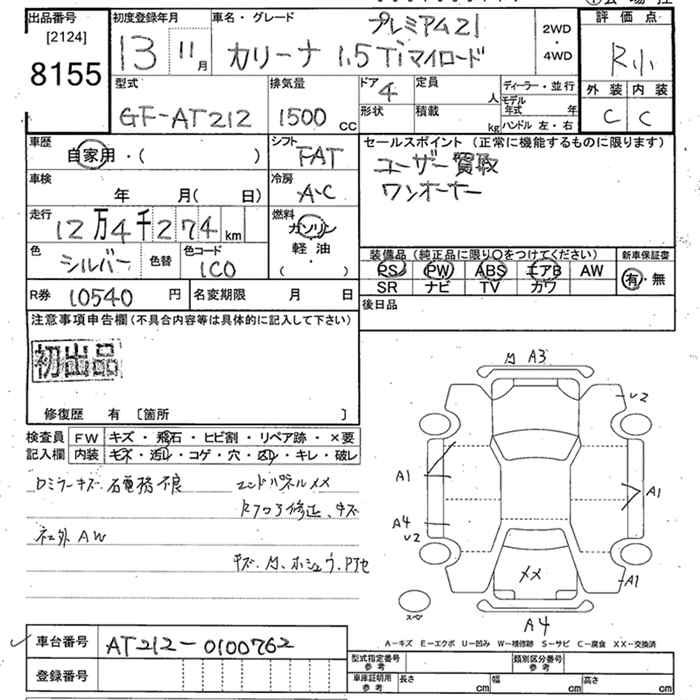 出品番号
[2124]
8155
初度登録年月
13 11月
車名・グレード
プレミアム21
カリーナ 1.5Tiマイロード
2WD
・
4WD
評価点
R小
外装 内装
C C
型式
GF-AT212
排気量
1500 cc
ドア 4
形状
定員 人
積載 kg
ディーラー・並行
モデル年式 年
ハンドル 左・右
車歴
自家用・( )
シフト
FAT
セールスポイント(正常に機能するものに限ります)
ユーザー買取
ワンオーナー
車検
年 月( 日)
冷房
A-C
走行
12万4千274km
燃料
ガソリン
軽油
( ・ )
色
シルバー
色替
色コード
1C0
装備品(純正品に限り○をつけてください)
PS PW ABS エアB AW
SR ナビ TV カワ
新車保証書
有・無
R券 10540円
名変期限 月 日
後日品
注意事項申告欄(不具合内容等は具体的に記入して下さい)
初出品
修復歴 有 [箇所 ]
検査員
記入欄
FW キズ・飛石・ヒビ割・リペア跡・×要
内装 キズ・汚レ・コゲ・穴・凶リ・キレ・破レ
エンドパネルメメ
社外 AW
A3
U2
A1
A1
A4
U2
A1
メメ
スペ
A4
A-キズ E-エクボ U-凹み W-補修跡 S-サビ C-腐食 XX-交換済
車台番号 AT212-0100762
登録番号
型式指定番号
参考
類別区分番号
参考
車庫証明用
参考
長さ cm 幅 cm 高さ cm